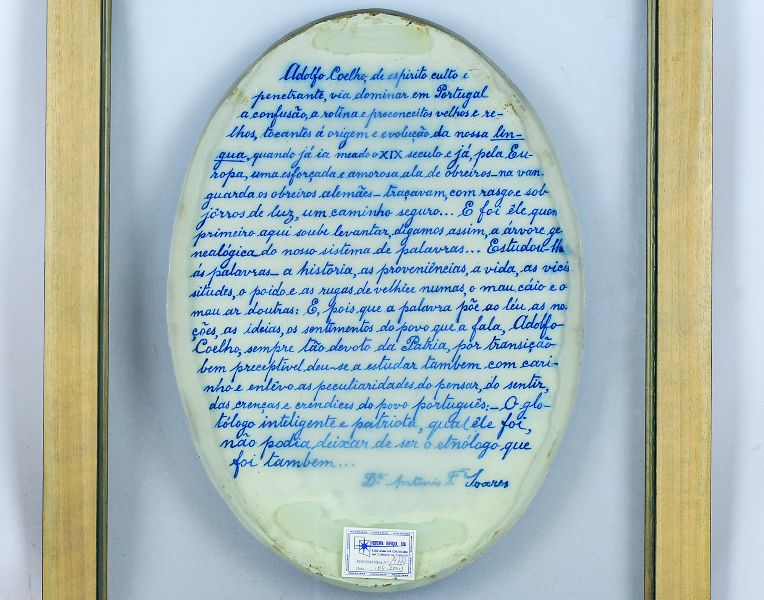 Adolfo Coelho, de espirito culto e
penetrante, via dominar em Portugal
a confusão, a rotina e preconceitos velhos e re-
lhos, tocantes á origem e evolução da nossa lin-
gua, quando já ia meado o XIX seculo e já, pela Eu-
ropa, uma esforçada e amorosa ala de obreiros – na van-
guarda os obreiros alemães – traçavam, com rasgo e sob
jôrros de luz, um caminho seguro... E foi êle quem
primeiro aqui soube levantar, digamos assim, a árvore ge-
nealógica do nosso sistema de palavras... Estudou-lh
ás palavras – a historia, as proveniências, a vida, as vicis
situdes, o poido e as rugas de velhice numas, o mau cáio e o
mau ar doutras: E, pois que a palavra põe ao léu as no-
ções, as ideias, os sentimentos do povo que a fala, Adolfo
Coelho, sempre tão devoto da Patria, por transição
bem preceptivel deu-se a estudar tambem com cari-
nho e enlêvo as peculiaridades do pensar, do sentir,
das crenças e crendices do povo português: – O glo-
tólogo inteligente e patriota, qual êle foi,
não podia deixar de ser o etnólogo que
foi tambem...
Dr. Antonio F. Soares